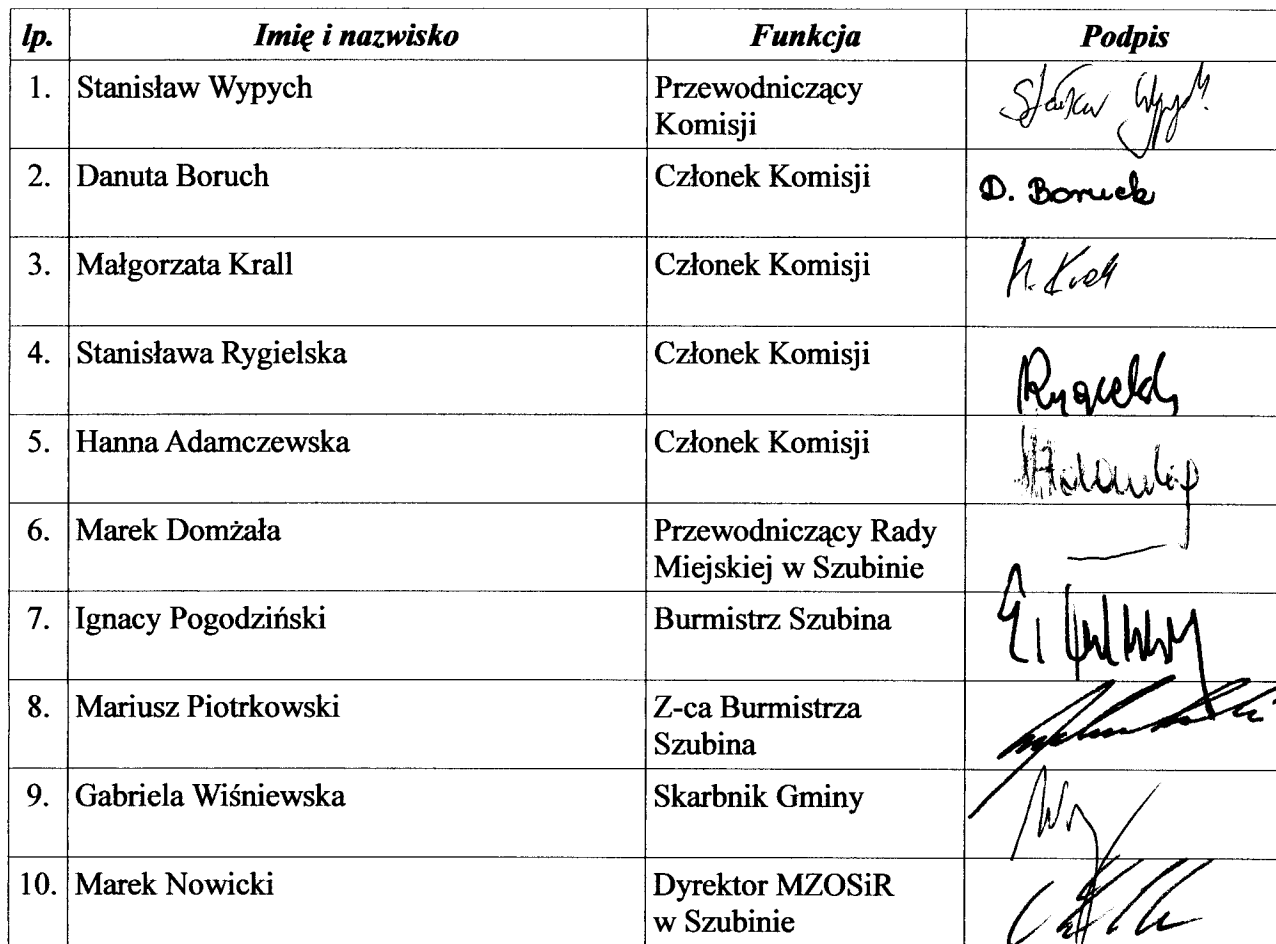 lp. Imię i nazwisko Funkcja Podpis
1. Stanisław Wypych Przewodniczący
Komisji
2. Danuta Boruch Członek Komisji D. Boruch
3. Małgorzata Krall Członek Komisji M. Krall
4. Stanisława Rygielska Członek Komisji
5. Hanna Adamczewska Członek Komisji
6. Marek Domżała Przewodniczący Rady
Miejskiej w Szubinie
7. Ignacy Pogodziński Burmistrz Szubina
8. Mariusz Piotrkowski Z-ca Burmistrza
Szubina
9. Gabriela Wiśniewska Skarbnik Gminy
10. Marek Nowicki Dyrektor MZOSiR
w Szubinie